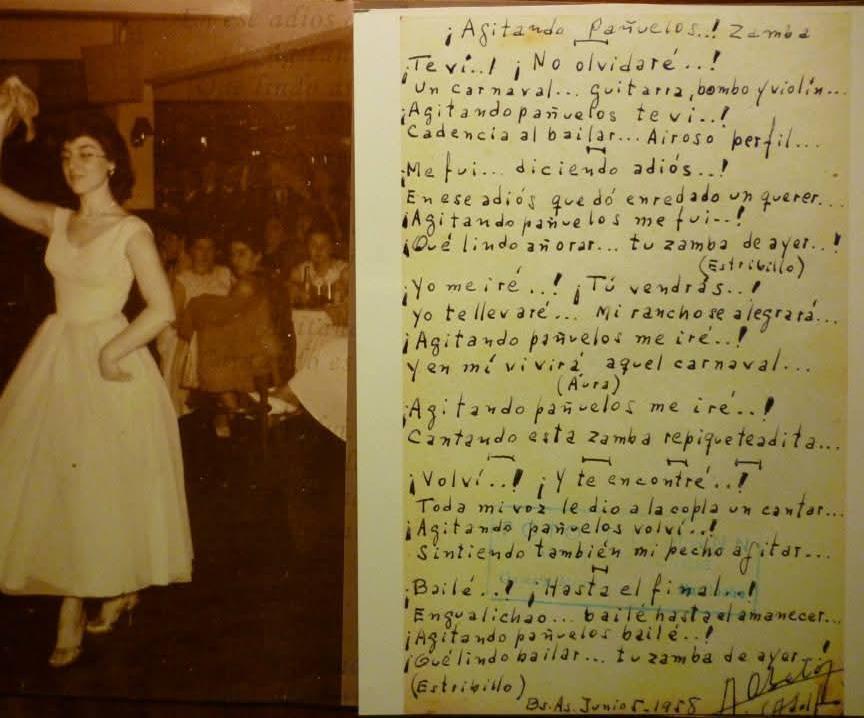 En ese adios
¡Agitando Pañuelos..! Zamba
¡Te ví..! ¡No olvidaré..!
Un carnaval... guitarra, bombo y violín...
¡Agitando pañuelos te vi..!
Cadencia al bailar... Airoso perfil...
¡Me fui... diciendo adiós..!
En ese adiós quedó enredado un querer...
¡Agitando pañuelos me fui..!
¡Qué lindo añorar... tu zamba de ayer..!
(Estribillo)
¡Yo me iré..! ¡Tú vendrás..!
Yo te llevaré... Mi rancho se alegrará...
¡Agitando pañuelos me iré..!
Y en mí vivirá aquel carnaval...
(Áura)
¡Agitando pañuelos me iré..!
Cantando esta zamba repiqueteadita...
¡Volví..! ¡Y te encontré..!
Toda mi voz le dio a la copla un cantar...
¡Agitando pañuelos volví..!
Sintiendo también mi pecho agitar...
¡Bailé..! ¡Hasta el final..!
Engualichao... bailé hasta el amanecer...
¡Agitando pañuelos bailé..!
¡Qué lindo bailar... tu zamba de ayer
(Estribillo)
Bs. As. Junio 5-1958